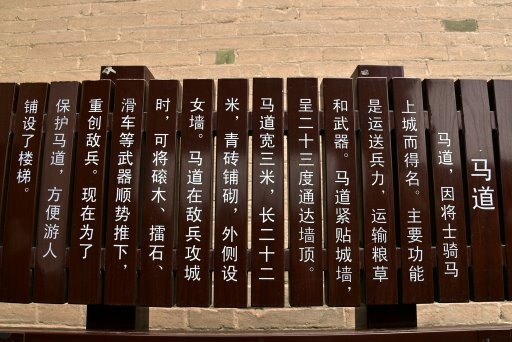 马道
马道，因将士骑马
上城而得名。主要功能
是运送兵力，运输粮草
和武器。马道紧贴城墙，
呈二十三度通达墙顶。
马道宽三米，长二十二
米，青砖铺砌，外侧设
女墙。马道在敌兵攻城
时，可将磙木、擂石、
滑车等武器顺势推下，
重创敌兵。现在为了
保护马道，方便游人
铺设了楼梯。